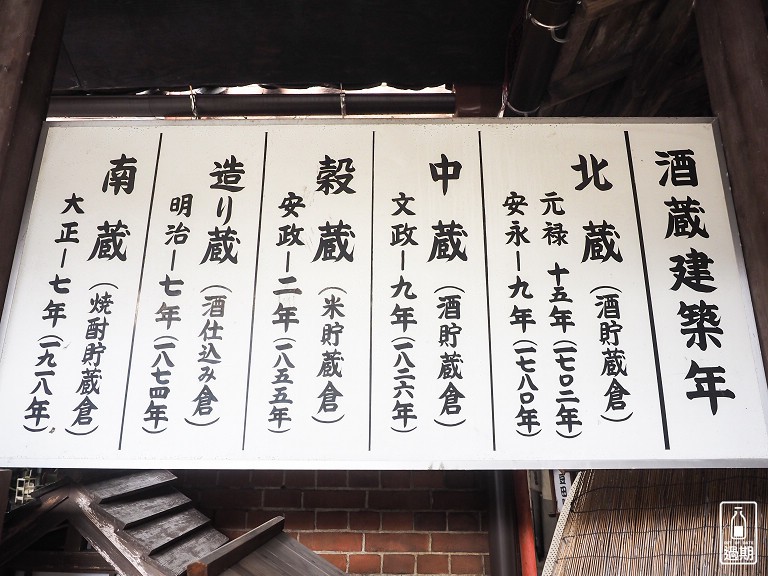 酒蔵建築年
北蔵(酒貯蔵倉)
元禄十五年(一七〇二年)
安永一九年(一七八〇年)
中蔵(酒貯蔵倉)
文政一九年(一八二六年)
穀蔵(米貯蔵倉)
安政一二年(一八五五年)
造り蔵(酒仕込み倉)
明治一七年(一八七四年)
南蔵(焼酎貯蔵倉)
大正一七年(一九一八年)
過期